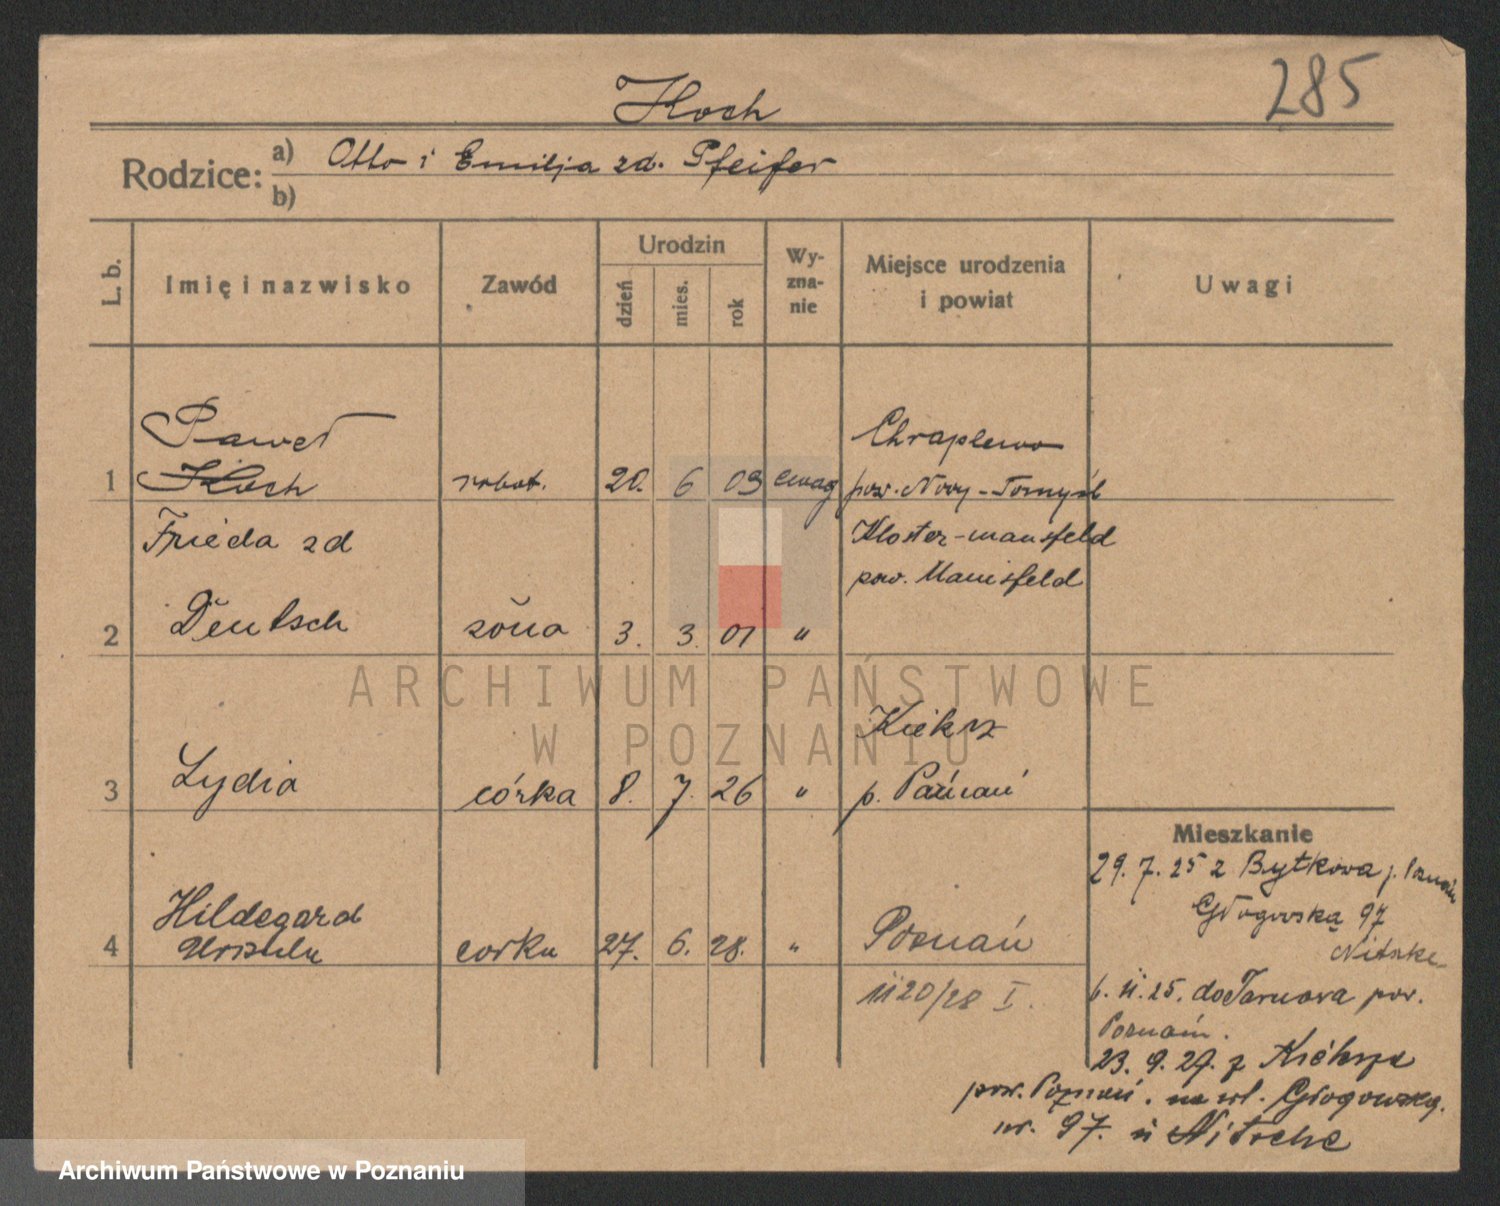 285
Koch
Rodzice: a) Otto i Emilja zd. Pfeifer
b)
L. b. Imię i nazwisko Zawód Urodzin dzień mies. rok Wy-zna-nie Miejsce urodzenia i powiat Uwagi
Paweł Chraplewo
1 Koch robot. 20. 6 03 ewag pow. Nowy-Tomyśl
Frieda zd Kloster-mansfeld
pow. Mansfeld
2 Deutsch żona 3. 3. 01 "
Kiekrz
3 Lydia córka 8. 7. 26 " p. Poznań
Mieszkanie
29. 7. 25 z Bytkowa p. Poznań
Hildegard Głogowska 97
4 Urszula corka 27. 6. 28. " Poznań
Nitszke
1120/28 I.
6. 11. 25. do Tarnowa pow.
Poznań.
23. 9. 29. z Kiekrza
pow. Poznań. na ul. Głogowską.
nr. 97. u Nitsche
ARCHIWUM PAŃSTWOWE
W POZNANIU
Archiwum Państwowe w Poznaniu